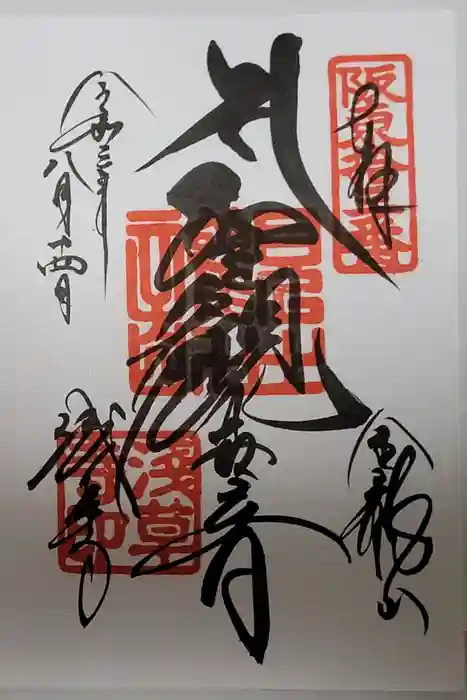 阪東拾三番
奉拝
金龍山
聖観世音
令和三年
八月十四日
浅草寺
浅草